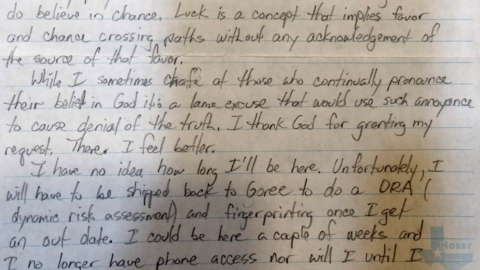 do believe in chance. Luck is a concept that implies favor
and chance crossing paths without any acknowledgement of
the source of that favor.
While I sometimes chafe at those who continually pronounce
their belief in God it's a lame excuse that would use such annoyance
to cause denial of the truth. I thank God for granting my
request. There. I feel better.
I have no idea how long I'll be here. Unfortunately, I
will have to be shipped back to Goree to do a DRA (
dynamic risk assessment) and fingerprinting once I get
an out date. I could be here a couple of weeks and
I no longer have phone access nor will I until I